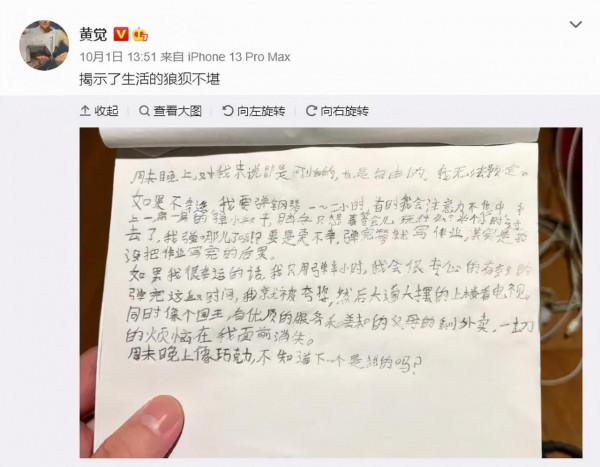 黄觉
10月1日 13:51 来自 iPhone 13 Pro Max
揭示了生活的狼狈不堪
收起 查看大图 向左旋转 向右旋转
周末晚上,对我来说是可怕的,也是自由的,我无法预定。
如果不幸运,我要弹钢琴一~二小时,有时我会注意力不集中,
上一周一周的
去了,我弹哪儿了呀?要是更不幸,弹完琴就写作业,其实是我
没把作业写完的后果。
如果我很幸运的话,我只用弹半小时,我会很专心的
弹完这段时间,我就被夸奖,然后大摇大摆的上楼看电视。
同时像个国王,有优质的服务和善和的父母的 外卖,一切
的烦恼在我面前消失。
周末晚上像巧克力,不知道下一个是甜的吗?